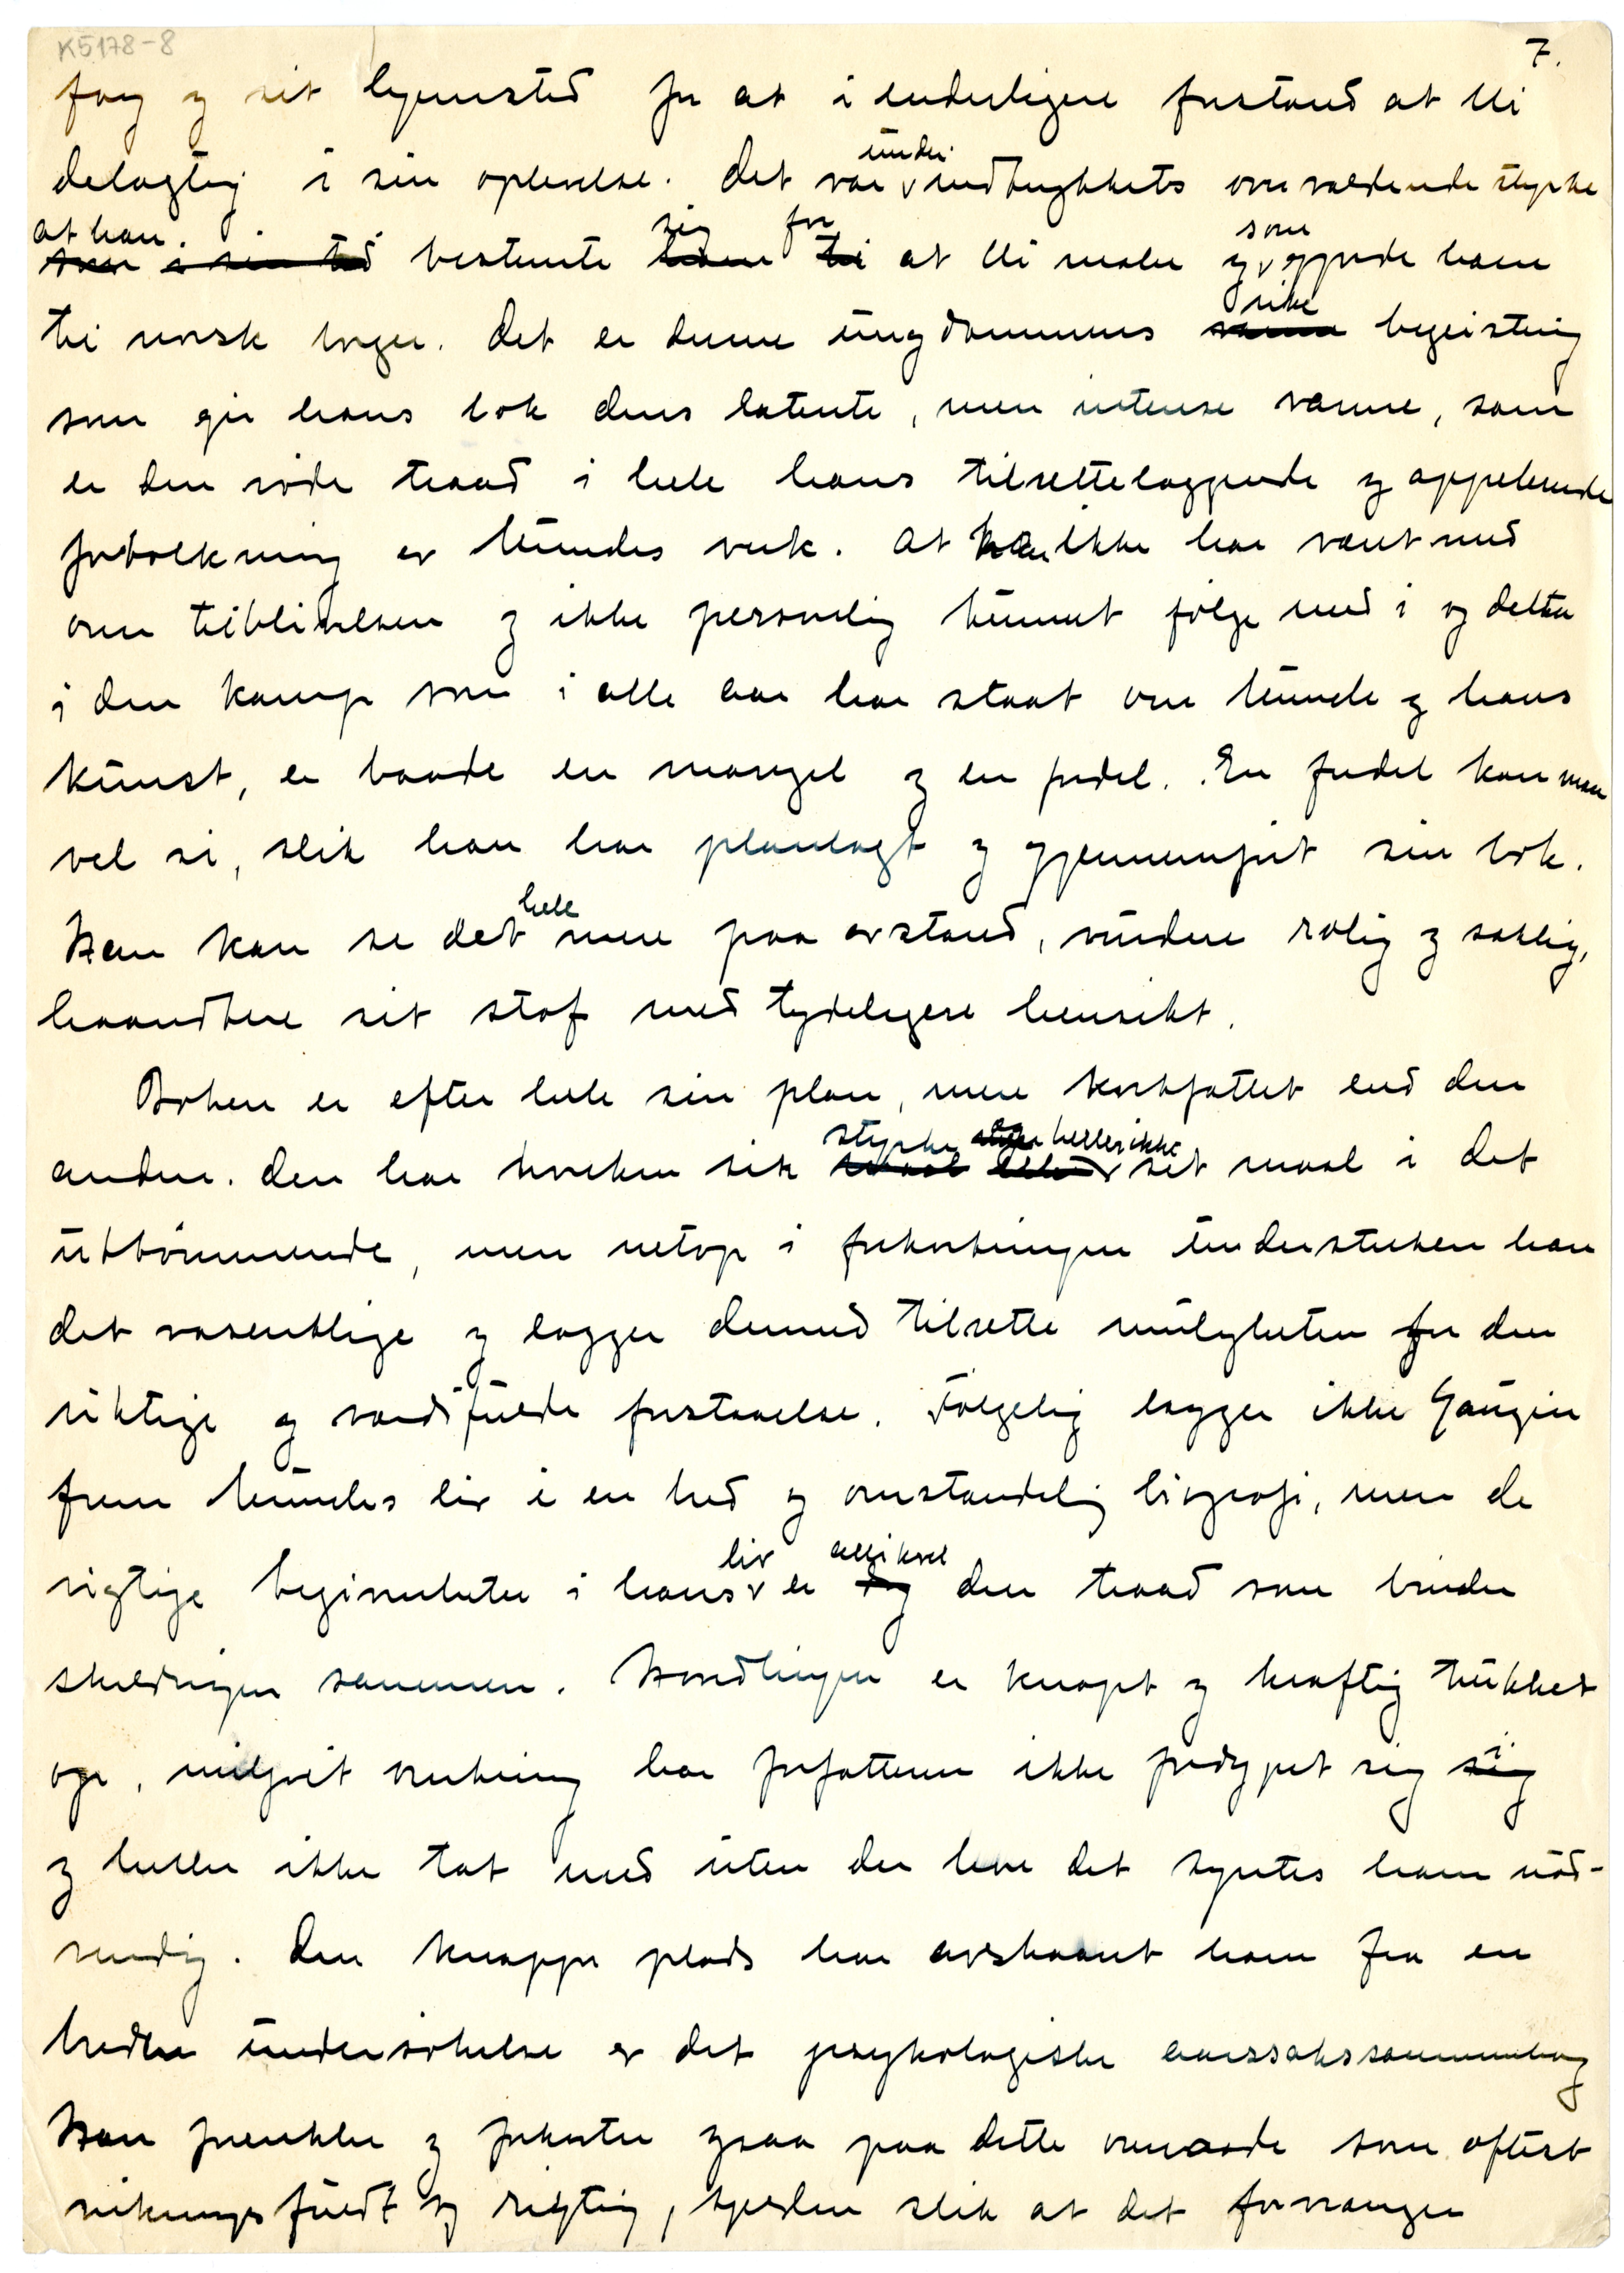 K5178-8
7.
farg og sit hjemsted for at i inderligere forstand at bli
delagtig i sin oplevelse. Det var under indtrykkets overvældende styrke
at han som i sin tid bestemte sig ham for til at bli maler og som gjorde ham
til norsk borger. Det er denne ungdommens rike begeistring
som gir hans bok dens latente, men intense varme, som
er den røde traad i hele hans tilretteleggende og appelerende
fortolkning av Munchs verk. At han ikke har været med
om tilblivelsen og ikke personlig kunnet følge med i og delta
i den kamp som i alle aar har staat om Munch og hans
kunst, er baade en mangel og en fordel. En fordel kan man
vel si, slik han har planlagt og gjennemført sin bok.
Han kan se det hele mere paa avstand, vurdere rolig og saklig,
haandtere sit stof med tydeligere hensikt.
Boken er efter hele sin plan, mere kortfattet end den
anden. Den har hverken sik styrke eller heller ikke sit maal i det
uttømmende, men netop i forkortningen understreker han
det væsentlige og lægger dermed tilrette muligheten for den
riktige og værdifulde forstaaelse. Følgelig lægger ikke Gauguin
frem Munchs liv i en bred og omstændelig biografi, men de
rigtige begivenheter i hans liv er allikevel dog den traad som binder
skildringen sammen. Handlingen er knapt og kraftig trukket
op, miljøets virkning har forfatteren ikke fordypet sig i sig
og heller ikke tat med uten der hvor det syntes ham nød-
vendig. Den knappe plads har avskaaret ham fra en
bredere undersøkelse av det psykologiske aarsakssammenhæng
Han forenkler og forkorter ogsaa paa dette omraade som oftest
virkningsfuldt og rigtig, sjelden slik at det forvansker